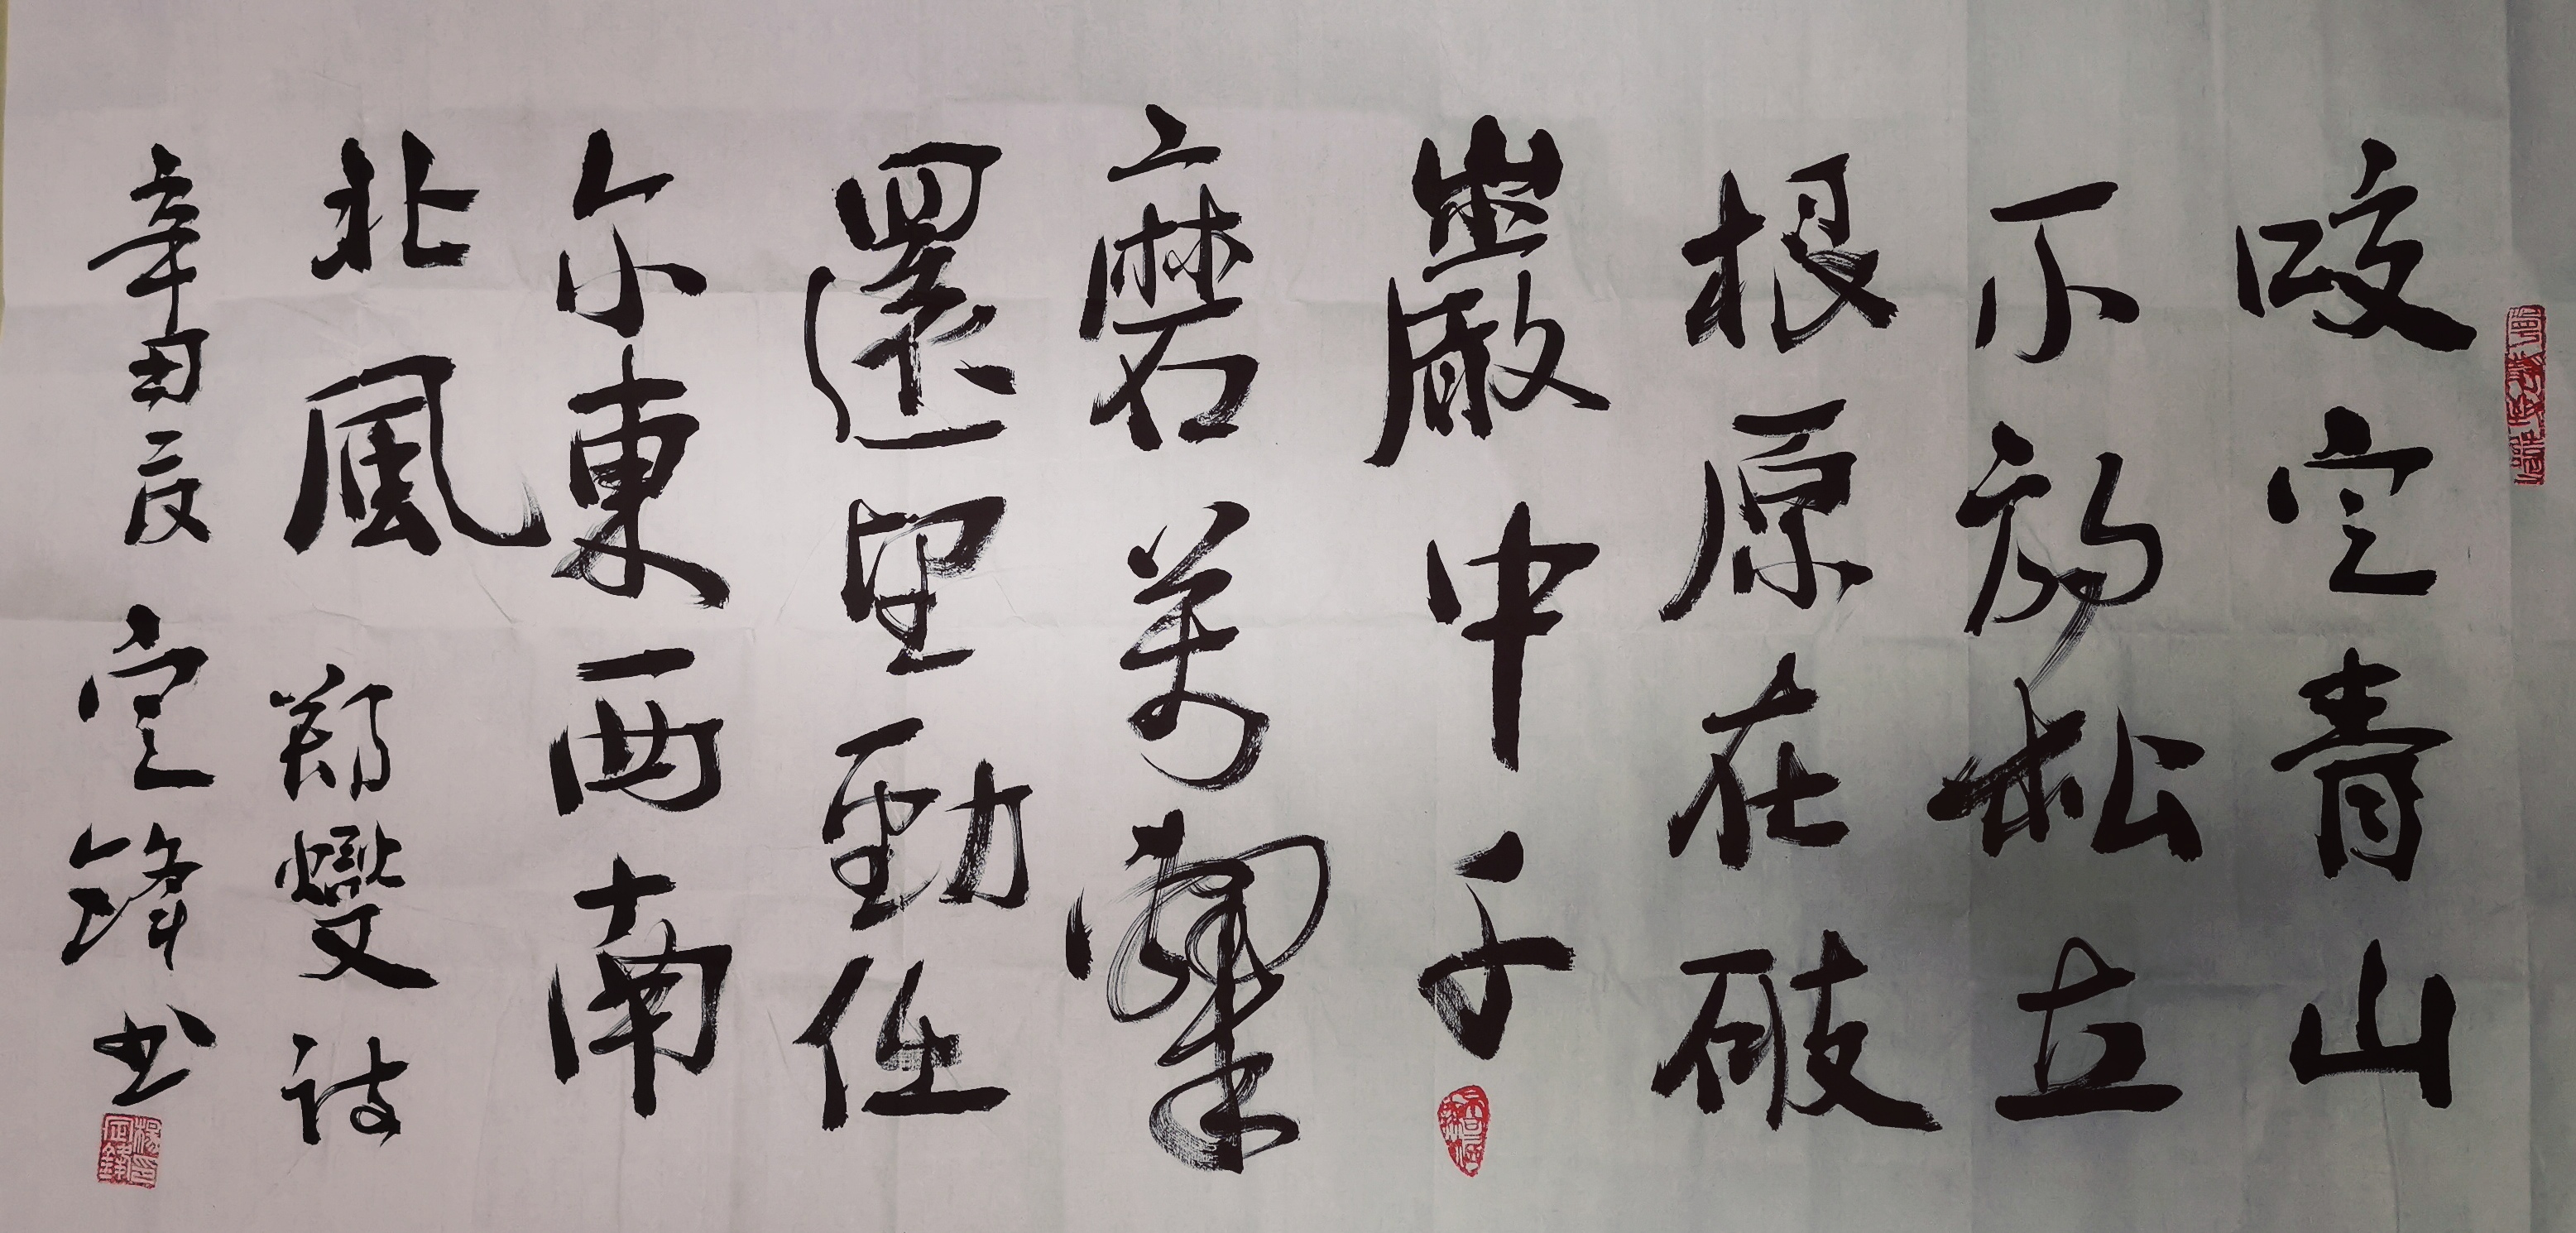 咬定青山
不放松立
根原在破
巖中千
磨萬擊
還堅勁任
尔東西南
北風 鄭燮詩
辛丑夏 定锋书